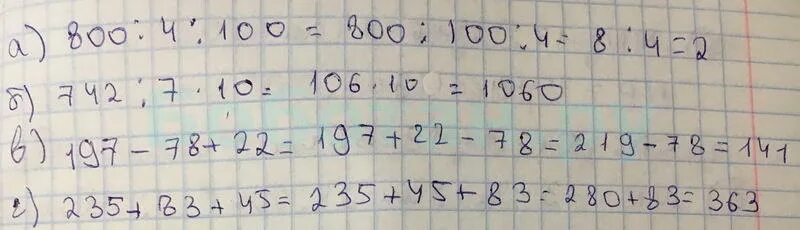 а) 800 : 4 : 100 = 800 : 100 : 4 = 8 : 4 = 2
б) 742 : 7 · 10 = 106 · 10 = 1060
в) 197 - 78 + 22 = 197 + 22 - 78 = 219 - 78 = 141
г) 235 + 83 + 45 = 235 + 45 + 83 = 280 + 83 = 363